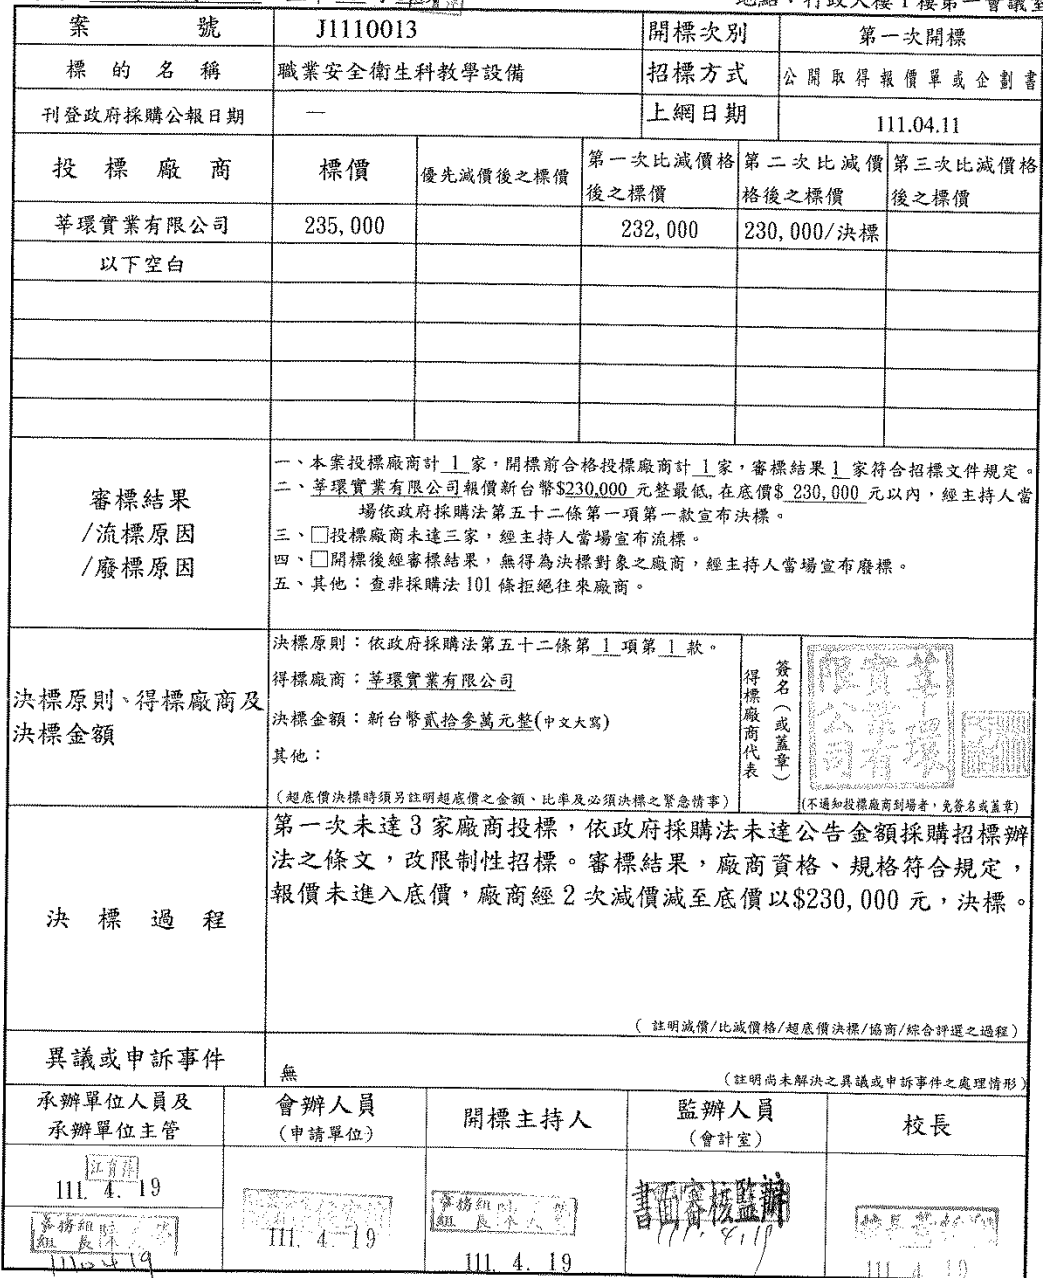 地點：行政大樓1樓第一會議室
案號 J1110013 開標次別 第一次開標
標的名稱 職業安全衛生科教學設備 招標方式 公開取得報價單或企劃書
刊登政府採購公報日期 — 上網日期 111.04.11
投標廠商 標價 優先減價後之標價 第一次比減價格後之標價 第二次比減價格後之標價 第三次比減價格後之標價
莘環實業有限公司 235,000 232,000 230,000/決標
以下空白
審標結果
/流標原因
/廢標原因
一、本案投標廠商計 1 家，開標前合格投標廠商計 1 家，審標結果 1 家符合招標文件規定。
二、莘環實業有限公司報價新台幣$230,000 元整最低,在底價$ 230,000 元以內，經主持人當
場依政府採購法第五十二條第一項第一款宣布決標。
三、□投標廠商未達三家，經主持人當場宣布流標。
四、□開標後經審標結果，無得為決標對象之廠商，經主持人當場宣布廢標。
五、其他：查非採購法 101 條拒絕往來廠商。
決標原則、得標廠商及
決標金額
決標原則：依政府採購法第五十二條第 1 項第 1 款。
得標廠商：莘環實業有限公司
決標金額：新台幣貳拾參萬元整(中文大寫)
其他：
(超底價決標時須另註明超底價之金額、比率及必須決標之緊急情事)
得標廠商代表
簽名（或蓋章）
莘環
實業有
限公司
(不通知投標廠商到場者，免簽名或蓋章)
決標過程
第一次未達 3 家廠商投標，依政府採購法未達公告金額採購招標辦
法之條文，改限制性招標。審標結果，廠商資格、規格符合規定，
報價未進入底價，廠商經 2 次減價減至底價以$230,000 元，決標。
( 註明減價/比減價格/超底價決標/協商/綜合評選之過程)
異議或申訴事件
無
(註明尚未解決之異議或申訴事件之處理情形)
承辦單位人員及
承辦單位主管
會辦人員
(申請單位)
開標主持人
監辦人員
(會計室)
校長
111. 4. 19
事務組
組長
111. 4. 19
事務組
組長
111. 4. 19
書面審核監辦
111. 4. 19
校長
111. 4. 19